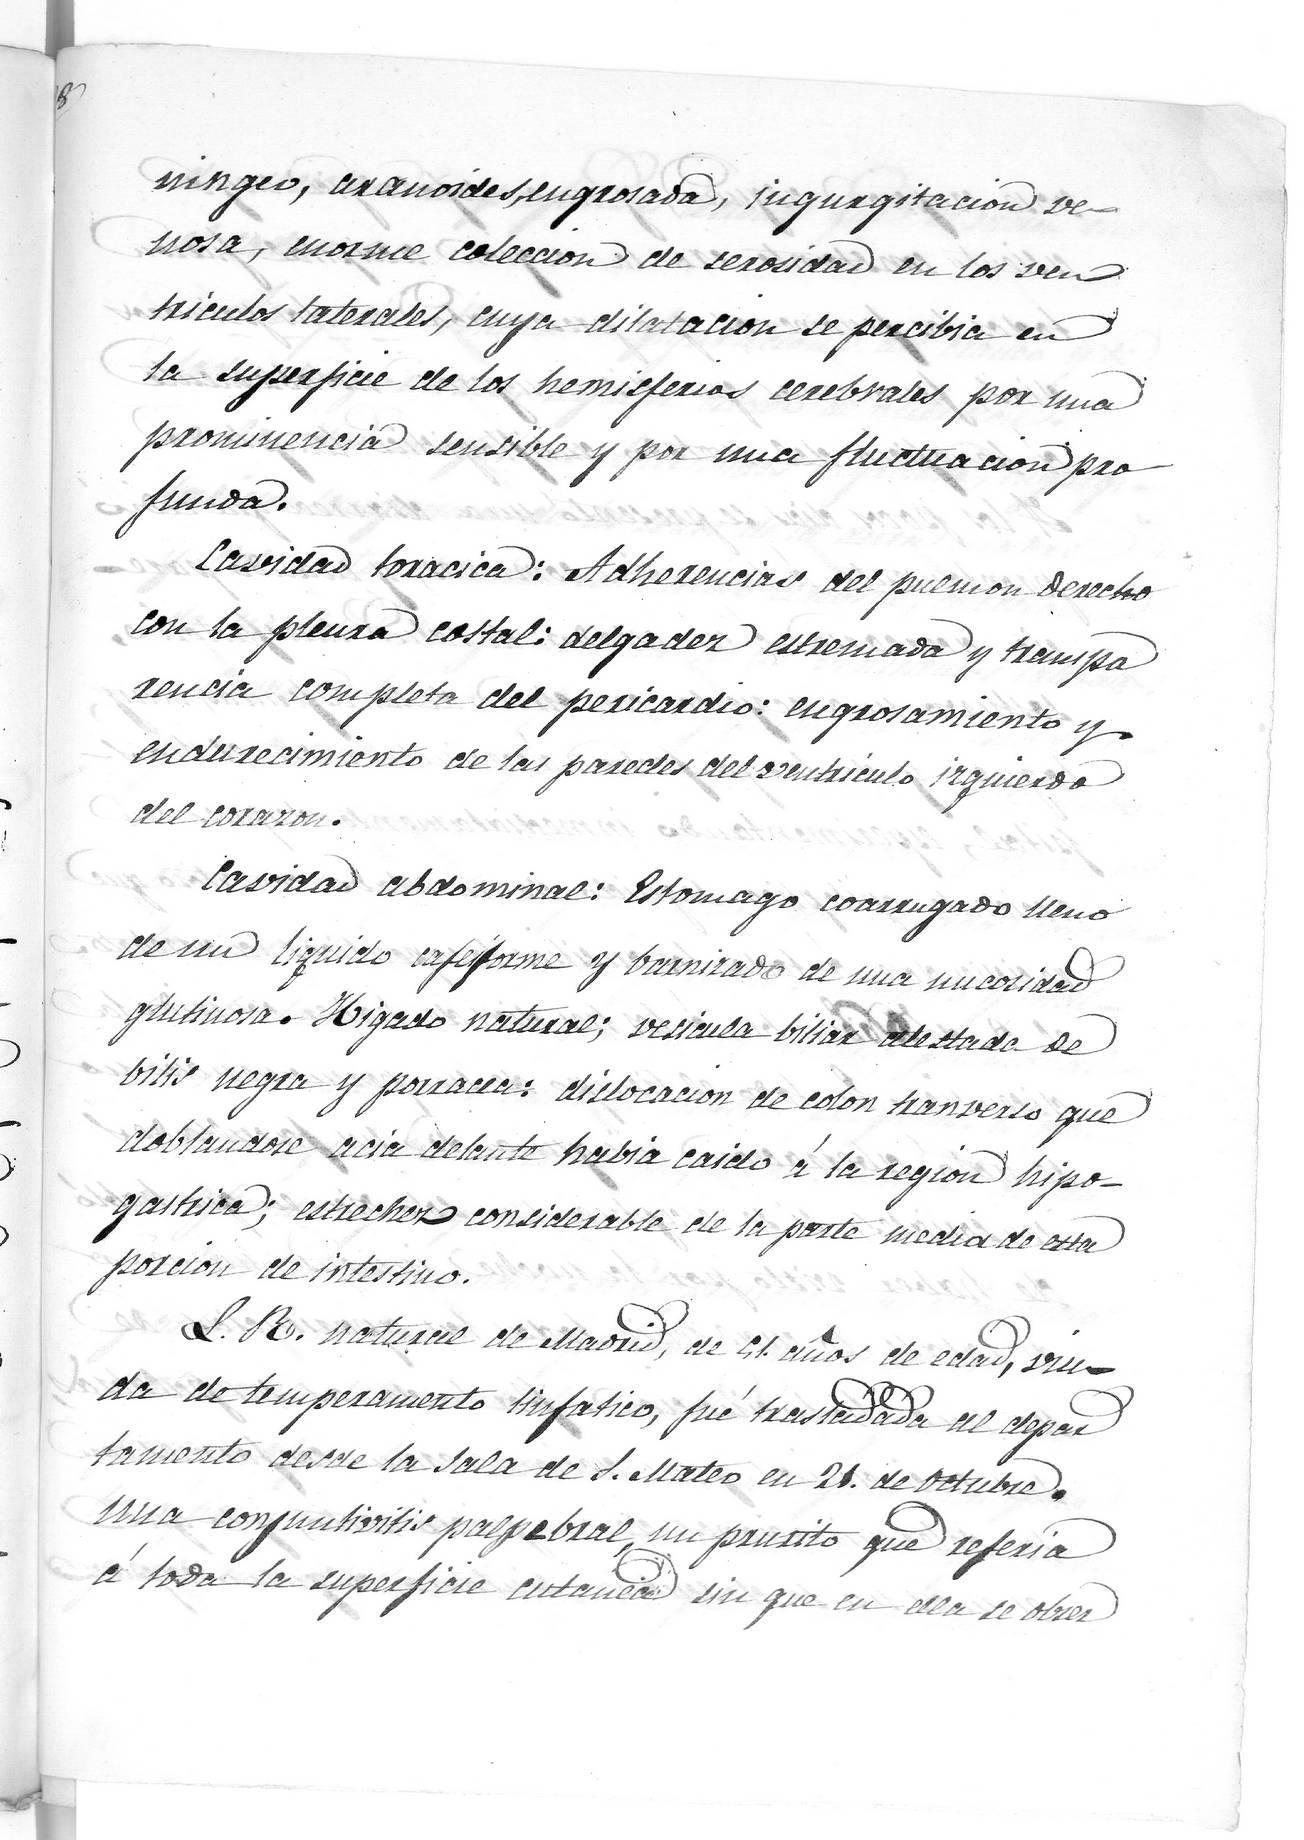 ningeo, aranoides, engrosada, ingurgitacion ve-
nosa, enorme coleccion de serosidad en los ven
triculos laterales, cuya dilatacion se percibia en
la superficie de los hemisferios cerebrales por una
prominencia sensible y por una fluctuacion pro
funda.
Cavidad toracica: Adherencias del pulmon derecho
con la pleura costal: delgadez estremada y transpa
rencia completa del pericardio: engrosamiento y
endurecimiento de las paredes del ventriculo izquierdo
del corazon.
Cavidad abdominal: Estomago coarrugado lleno
de un liquido cafeiforme y barnizado de una mucosidad
glutinosa. Higado natural; vesicula biliar atestada de
bilis negra y porracea: dislocacion de colon tranverso que
doblandose acia delante habia caido á la region hipo-
gastrica; estrechez considerable de la parte media de esta
porcion de intestino.
L. R. natural de Madrid, de 51. años de edad, viu-
da de temperamento linfatico, fué trasladada al depar
tamento desde la sala de S. Mateo en 21. de Octubre.
Una conjuntivitis palpebral, un prurito que referia
á toda la superficie cutanea sin que en ella se obser